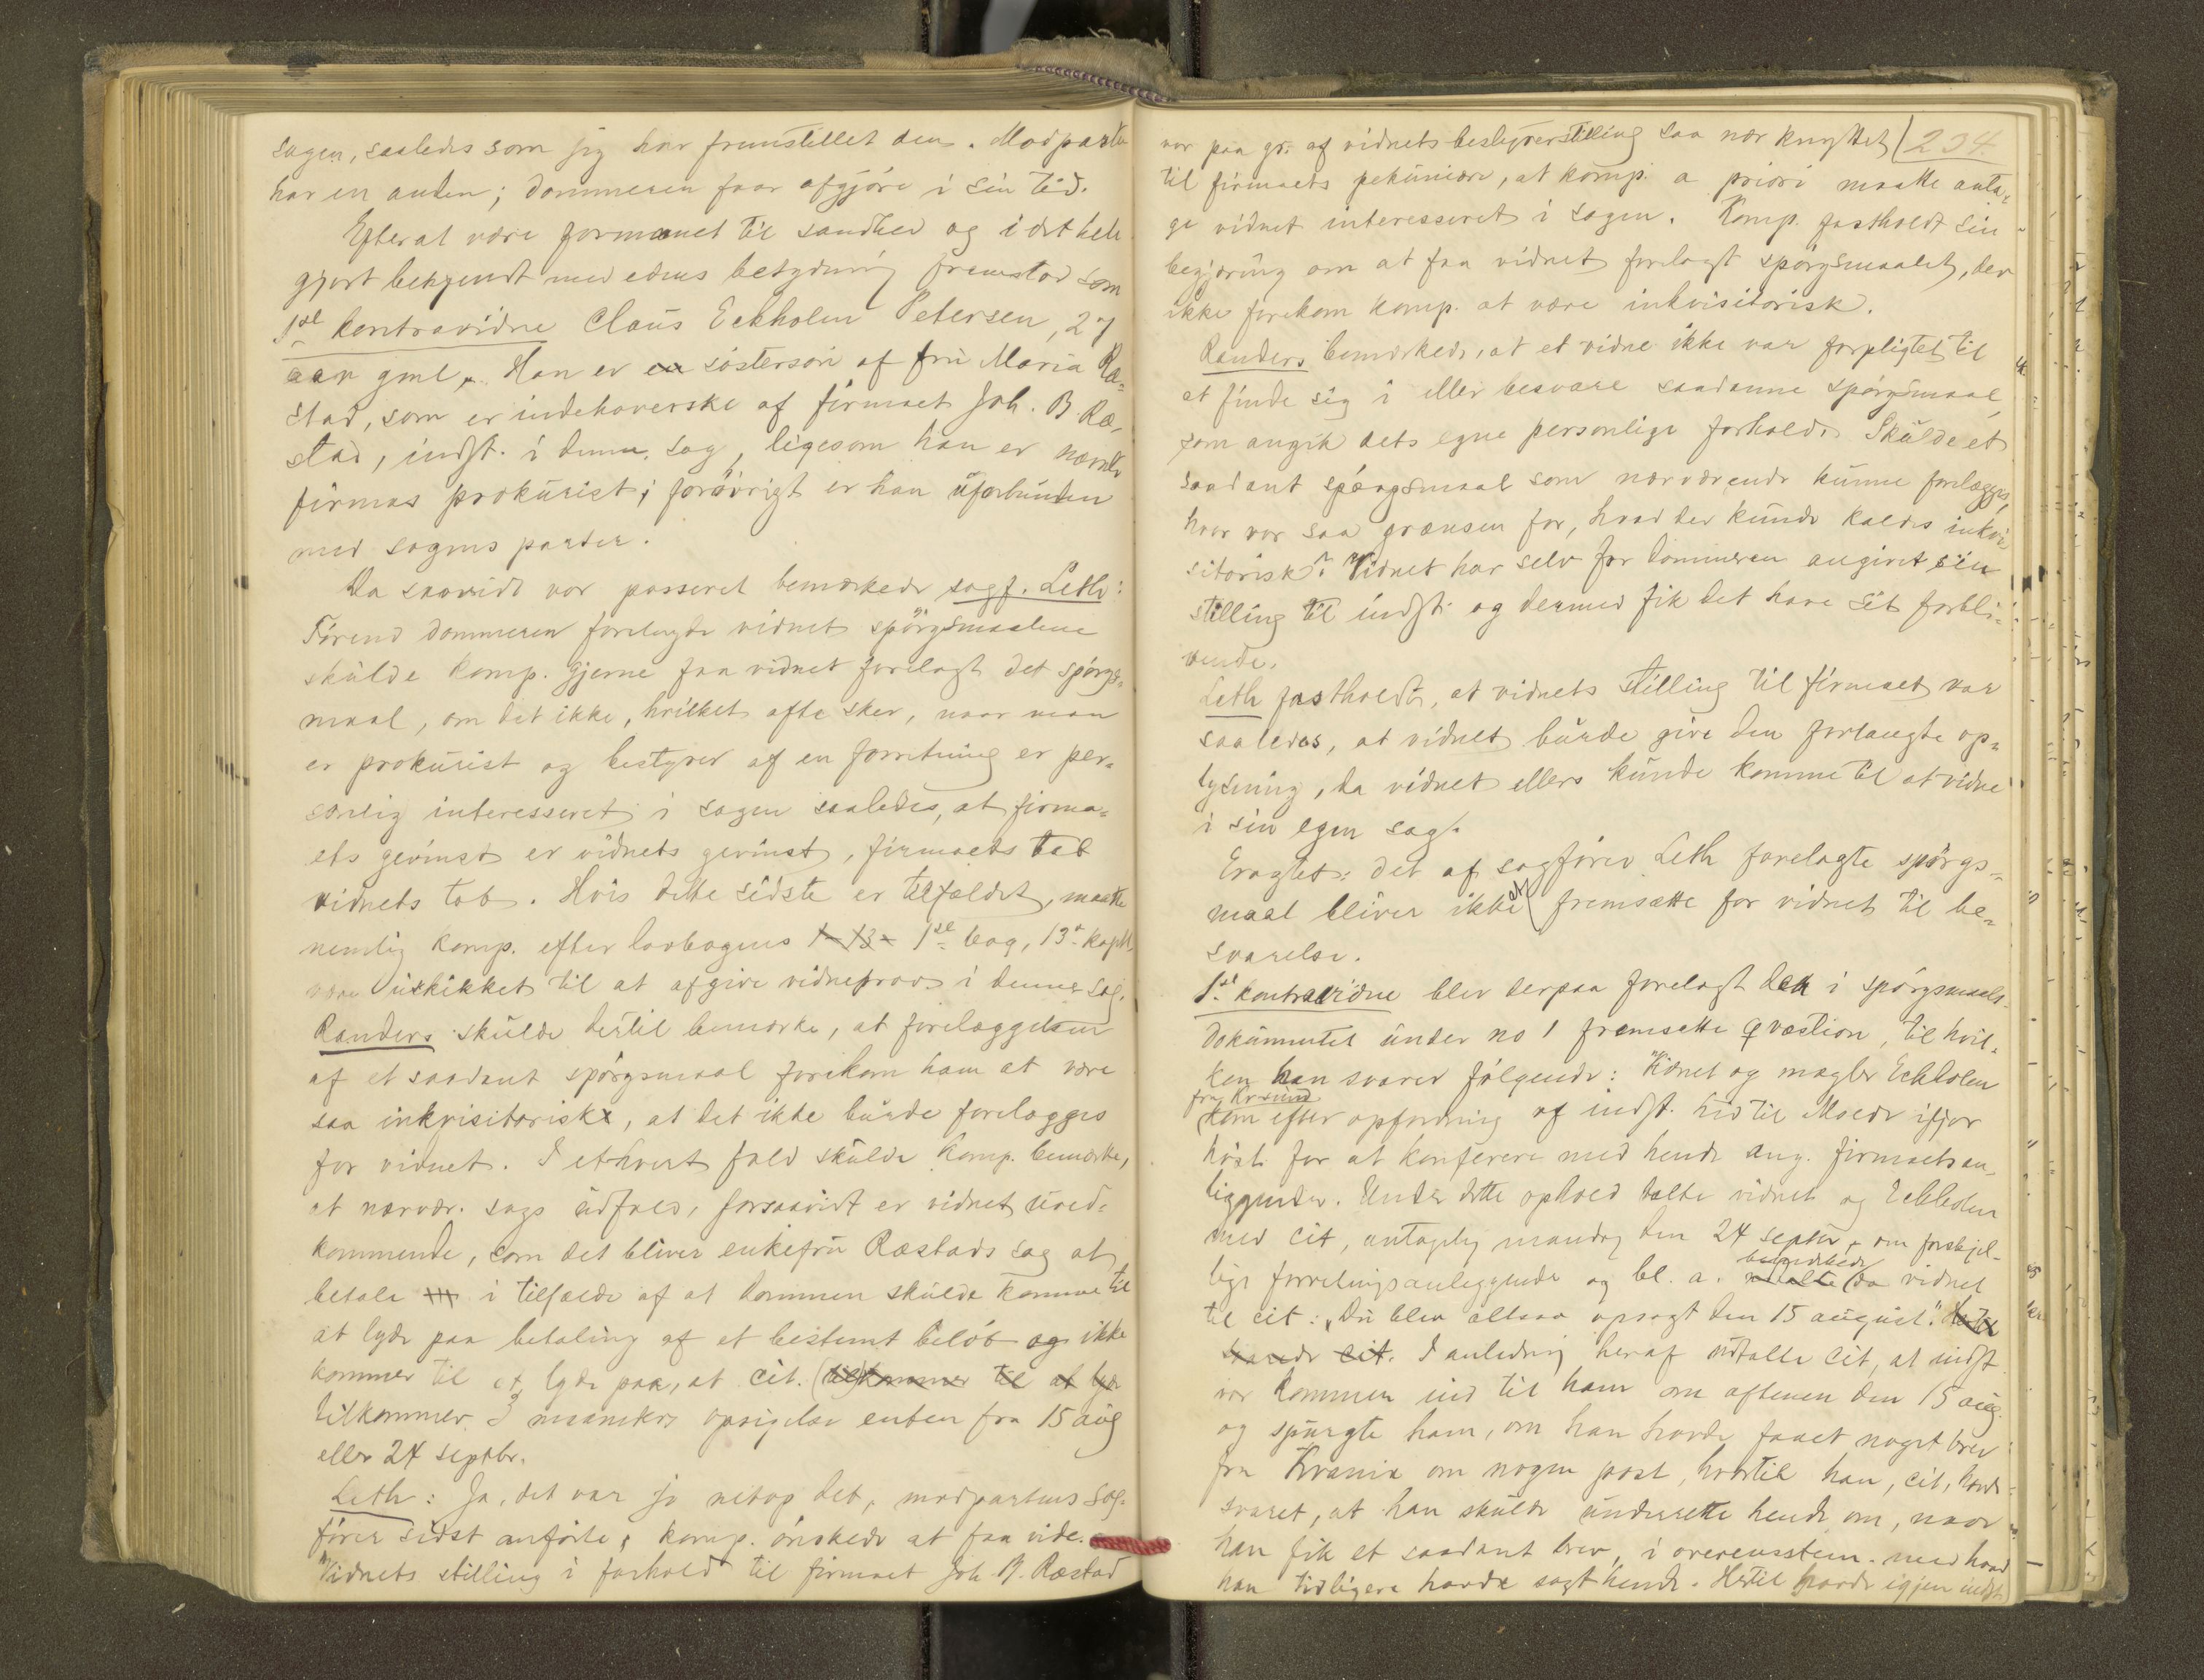 sagen, saaledes som jeg har fremstillet den. Modparten
har en anden; dommeren faar afgjøre i sin tid.
Efter at være formanet til sandhed og i det hele
gjort bekjendt med edens betydning fremstod som
1ste kontravidne Claus Eckholm Petersen, 27
aar gml. Han er en søstersøn af fru Maria Ræ-
stad, som er indehaverske af firmaet Joh. B. Ræ-
stad, indst. i denne sag, ligesom han er nævnte
firmas prokurist; forøvrigt er han uforbunden
med sagens parter.
Da saavidt var passeret bemærkede sagf. Leth:
Førend dommeren forelagde vidnet spørgsmaalene
skulde komp. gjerne faa vidnet forelagt det spørgs-
maal, om det ikke, hvilket ofte sker, naar man
er prokurist og bestyrer af en forretning er per-
sonlig interesseret i sagen saaledes, at firma-
ets gevinst er vidnets gevinst, firmaets tab
vidnets tab. Hvis dette sidste er tilfældet, maatte
nemlig komp. efter lovbogens 1-13- 1ste bog, 13de kapt.
være uskikket til at afgive vidneprov i denne sag.
Randers skulde dertil bemærke, at forelæggelsen
af et saadant spørgsmaal forekom ham at være
saa inkvisitorisk, at det ikke burde forelægges
for vidnet. I ethvert fald skulde komp. bemærke,
at nærvær. sags udfald, forsaavidt er vidnet uved-
kommende, som det bliver enkefru Ræstads sag at
betale i tilfælde af at dommen skulde komme til
at lyde paa betaling af et bestemt beløb og ikke
kommer til at lyde paa, at cit. (tilkommer til at lyde
tilkommer 3 maaneders opsigelse enten fra 15 aug
eller 24 septbr.
Leth: Ja, det var jo netop det, modpartens sag-
fører sidst anførte, komp. ønskede at faa vide.
Vidnets stilling i forhold til firmaet Joh. B. Ræstad
var paa gr. af vidnets bestyrerstilling saa nær knyttet 234.
til firmaets pekuniære, at komp. a priori maatte anta-
ge vidnet interesseret i sagen. Komp. fastholdt sin
begjæring om at faa vidnet forelagt spørgsmaalet, der
ikke forekom komp. at være inkvisitorisk.
Randers bemærkede, at et vidne ikke var forpligtet til
at finde sig i eller besvare saadanne spørgsmaal,
som angik dets egne personlige forholde. Skulde et
saadant spørgsmaal som nærværende kunne forelægges,
hvor var saa grænsen for, hvad der kunde kaldes inkvi-
sitorisk? Vidnet har selv for dommeren angivet sin
stilling til indst. og dermed fik det have sit forbli-
vende.
Leth fastholdt, at vidnets stilling til firmaet var
saaledes, at vidnet burde give den forlangte op-
lysning, da vidnet ellers kunde komme til at vidne
i sin egen sag.
Eragtet: det af sagfører Leth forelagte spørgs-
maal bliver ikke at fremsætte for vidnet til be-
svarelse.
1ste kontravidne blev derpaa forelagt den i spørgsmaals-
dokumentet under no 1 fremsatte qvæstion, til hvil-
ken han svared følgende: Vidnet og mægler Eckholm
fra Krsund
kom efter opfordring af indst. hid til Molde ifjor
høst for at konferere med hende ang. firmaets an-
liggender. Under dette ophold talte vidnet og Eckholm
med cit, antagelig mandag den 24 septbr, om forskjel-
lige forretningsanliggende og bl. a. udtalte da vidnet
bemærkede
til cit: "Du blev altsaa opsagt den 15 august." Hertil
svarede cit. I anledning heraf udtalte cit, at indst
var kommen ind til ham om aftenen den 15 aug.
og spurgte ham, om han havde faaet noget brev
fra Krania om nogen post, hvortil han, cit, havde
svaret, at han skulde underrette hende om, naar
han fik et saadant brev, i overensstem. med hvad
han tidligere havde sagt hende. Hertil havde igjen indst.